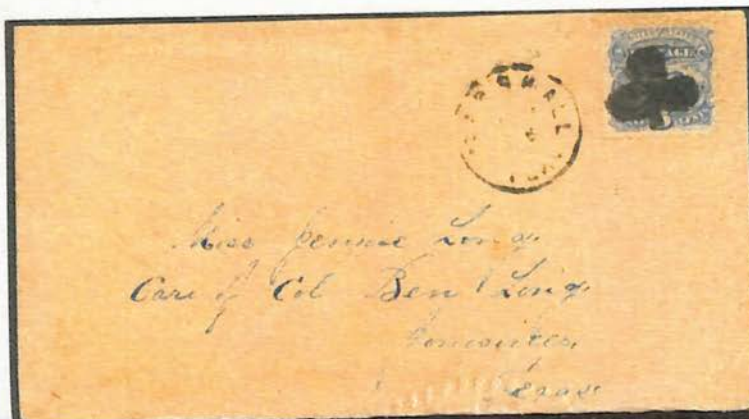 MARSHALL
TEX.
Miss Jennie Long
Care of Col Ben Long
Texas